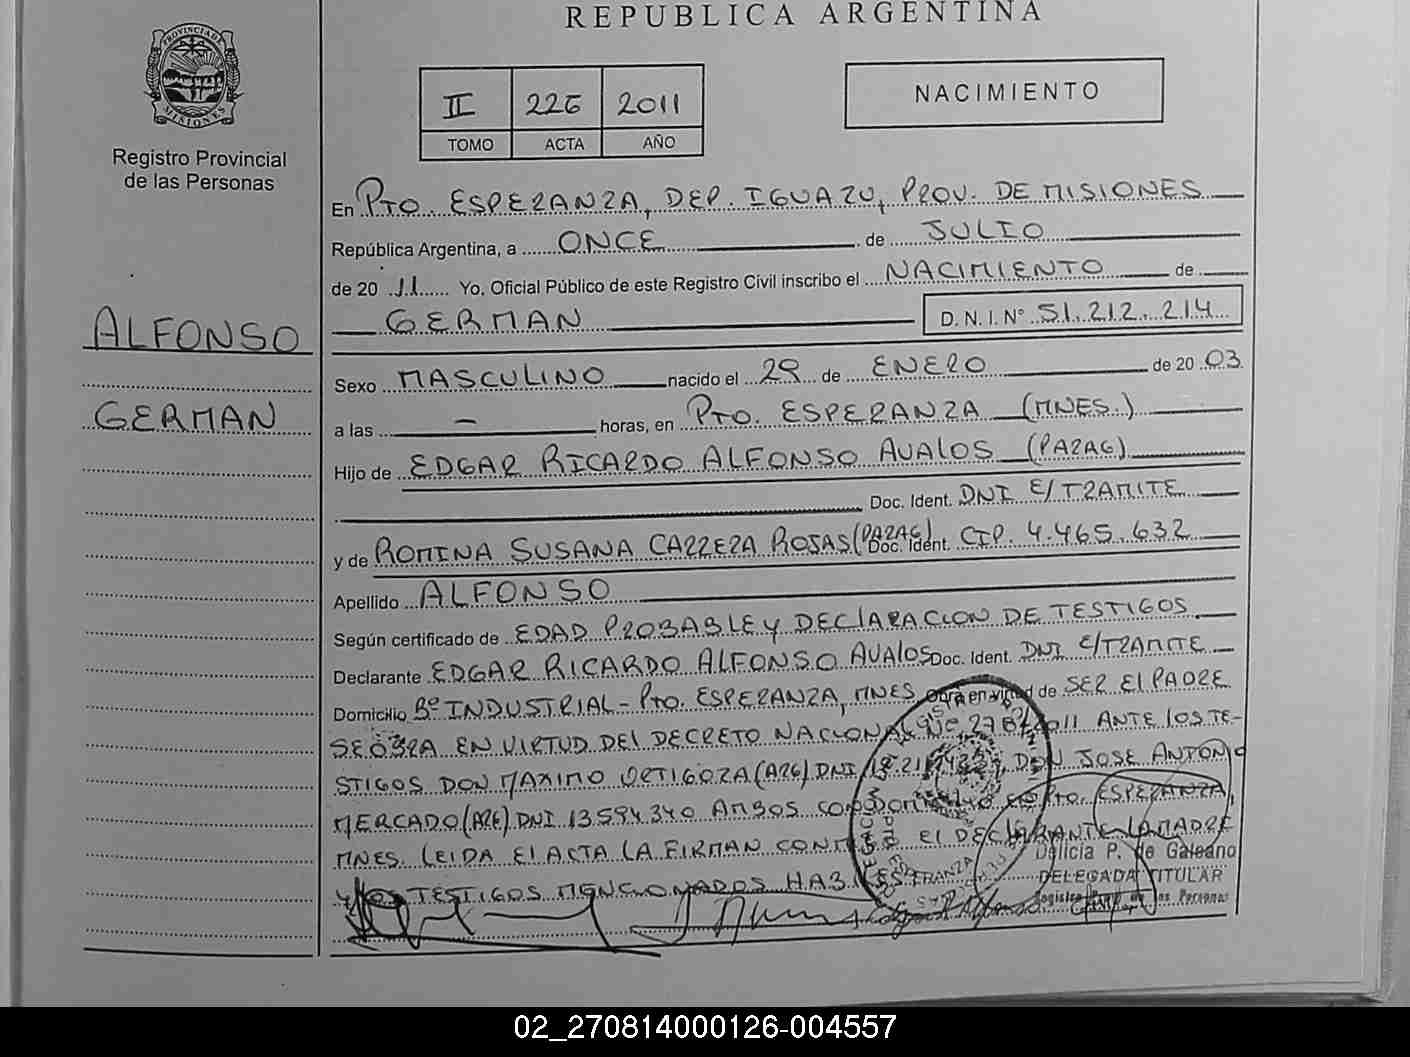 REPUBLICA ARGENTINA
PROVINCIA DE MISIONES
Registro Provincial
de las Personas
II 226 2011
TOMO ACTA AÑO
NACIMIENTO
ALFONSO
GERMAN
En PTO. ESPERANZA, DEP. IGUAZU, PROV. DE MISIONES
República Argentina, a ONCE de JULIO
de 20 11 Yo, Oficial Público de este Registro Civil inscribo el NACIMIENTO de
GERMAN D. N. I. N° 51.212.214
Sexo MASCULINO nacido el 29 de ENERO de 20 03
a las - horas, en PTO. ESPERANZA (MNES.)
Hijo de EDGAR RICARDO ALFONSO AVALOS (PARAG)
Doc. Ident. DNI E/TRAMITE
y de ROMINA SUSANA CARRERA ROJAS (PARAG) Doc. Ident. CIP. 4.465.632
Apellido ALFONSO
Según certificado de EDAD PROBABLE Y DECLARACION DE TESTIGOS
Declarante EDGAR RICARDO ALFONSO AVALOS Doc. Ident. DNI E/TRAMITE
Domicilio Bº INDUSTRIAL - PTO. ESPERANZA, MNES obra en virtud de SER EL PADRE
SE OBRA EN VIRTUD DEL DECRETO NACIONAL Nº 278/2011 ANTE LOS TE-
STIGOS DON MAXIMO ORTIGOZA (ARG) DNI DON JOSE ANTONIO
MERCADO (ARG) DNI 13594340 AMBOS CON DOMICILIO EN PTO. ESPERANZA,
MNES. LEIDA EL ACTA LA FIRMAN CONMIGO EL DECLARANTE LA MADRE
Y LOS TESTIGOS MENCIONADOS HABILES
Delicia P. de Galeano
DELEGADA TITULAR
Registro Prov. de las Personas
02_270814000126-004557